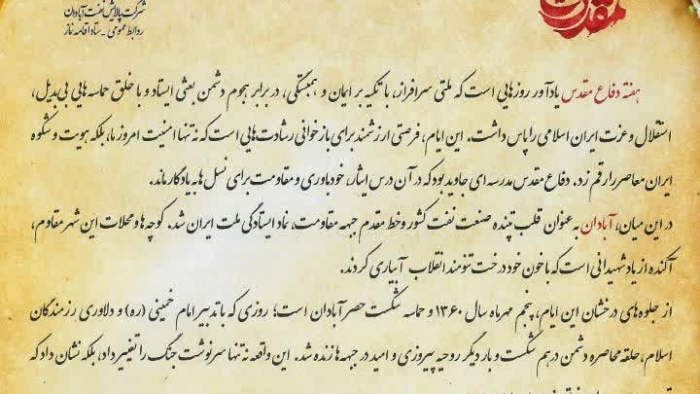 شرکت پالایش نفت آبادان
روابط عمومی - ستاد اقامه نماز
مقدس
هفته دفاع مقدس یادآور روزهایی است که ملتی سرافراز، با تکیه بر ایمان و همبستگی، در برابر هجوم دشمن بعثی ایستاد و با خلق حماسه هایی بی بدیل،
استقلال و عزت ایران اسلامی را پاس داشت. این ایام، فرصتی ارزشمند برای بازخوانی رشادت هایی است که نه تنها امنیت امروز ما، بلکه هویت و شکوه
ایران معاصر را رقم زد. دفاع مقدس مدرسه ای جاوید بود که در آن درس ایثار، خودباوری و مقاومت برای نسل ها به یادگار ماند.
در این میان، آبادان به عنوان قلب تپنده صنعت نفت کشور و خط مقدم جبهه مقاومت، نماد ایستادگی ملت ایران شد. کوچه ها و محلات این شهر مقاوم،
آکنده از یاد شهیدانی است که با خون خود درخت تنومند انقلاب آبیاری کردند.
از جلوه های درخشان این ایام، پنجم مهرماه سال ۱۳۶۰ و حماسه شکست حصر آبادان است؛ روزی که با تدبیر امام خمینی (ره) و دلاوری رزمندگان
اسلام، حلقه محاصره دشمن درهم شکست و بار دیگر روحیه پیروزی و امید در جبهه ها زنده شد. این واقعه نه تنها سرنوشت جنگ را تغییر داد، بلکه نشان داد که